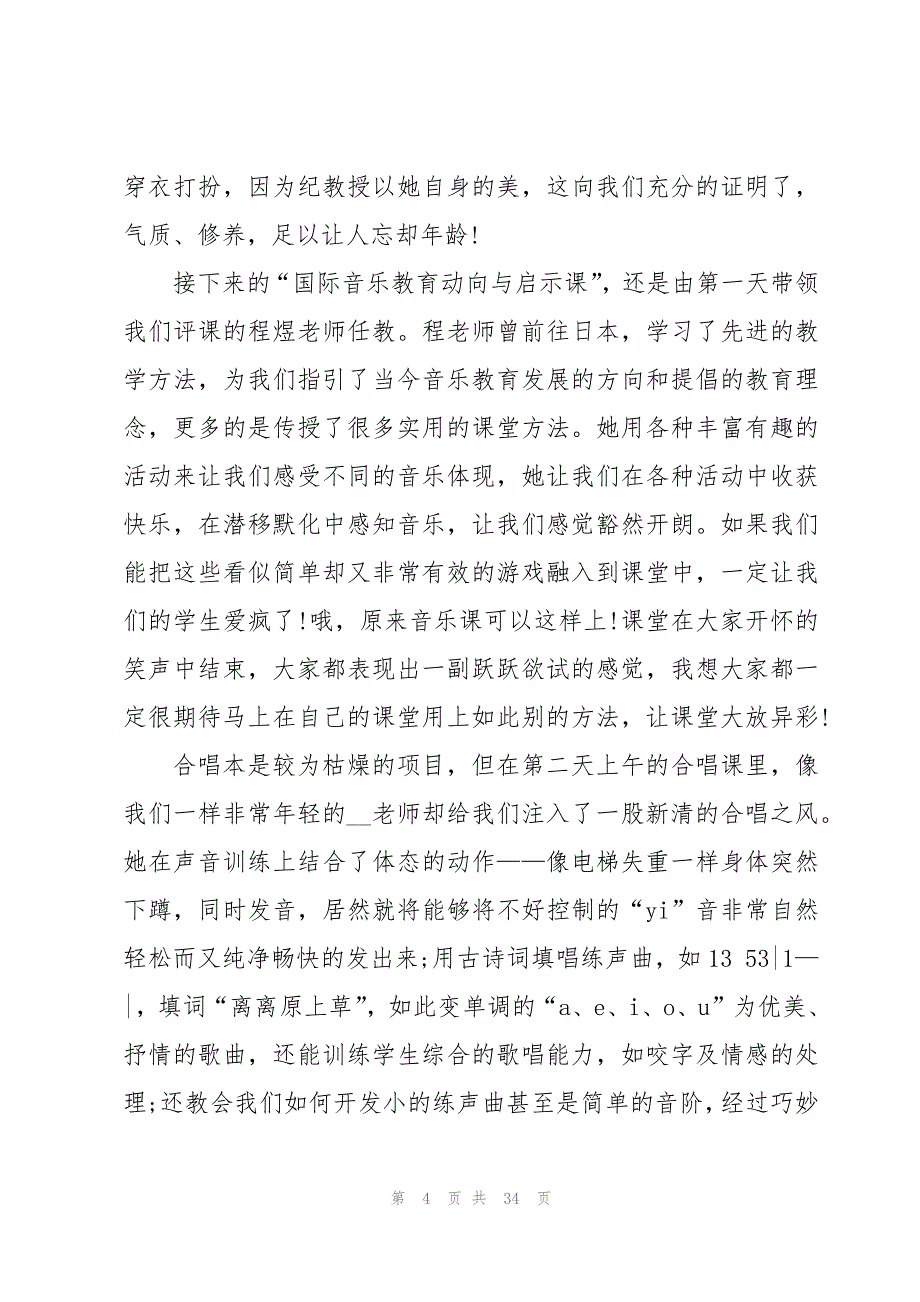 穿衣打扮，因为纪教授以她自身的美，这向我们充分的证明了，
气质、修养，足以让人忘却年龄!
接下来的“国际音乐教育动向与启示课”，还是由第一天带领
我们评课的程煜老师任教。程老师曾前往日本，学习了先进的教
学方法，为我们指引了当今音乐教育发展的方向和提倡的教育理
念，更多的是传授了很多实用的课堂方法。她用各种丰富有趣的
活动来让我们感受不同的音乐体现，她让我们在各种活动中收获
快乐，在潜移默化中感知音乐，让我们感觉豁然开朗。如果我们
能把这些看似简单却又非常有效的游戏融入到课堂中，一定让我
们的学生爱疯了!哦，原来音乐课可以这样上!课堂在大家开怀的
笑声中结束，大家都表现出一副跃跃欲试的感觉，我想大家都一
定很期待马上在自己的课堂用上如此别的方法，让课堂大放异彩!
合唱本是较为枯燥的项目，但在第二天上午的合唱课里，像
我们一样非常年轻的__老师却给我们注入了一股新清的合唱之风。
她在声音训练上结合了体态的动作——像电梯失重一样身体突然
下蹲，同时发音，居然就将能够将不好控制的“yi”音非常自然
轻松而又纯净畅快的发出来;用古诗词填唱练声曲，如 13 53|1—
|，填词“离离原上草”，如此变单调的“a、e、i、o、u”为优美、
抒情的歌曲，还能训练学生综合的歌唱能力，如咬字及情感的处
理;还教会我们如何开发小的练声曲甚至是简单的音阶，经过巧妙
第 4 页 共 34 页